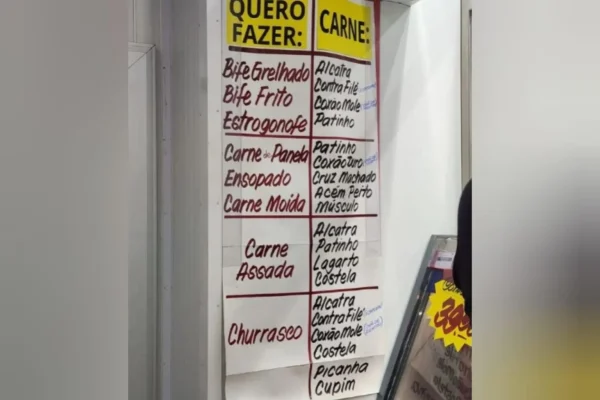 QUERO FAZER:
CARNE:
Bife Grelhado
Bife Frito
Estrogonofe
Alcatra
Contra Filé
Coxão Mole
Patinho
Carne de Panela
Ensopado
Carne Moída
Patinho
Coxão Duro
Cruz Machado
Acém Peito
Músculo
Carne
Assada
Alcatra
Patinho
Lagarto
Costela
Churrasco
Alcatra
Contra Filé
Coxão Mole
Costela
Picanha
Cupim